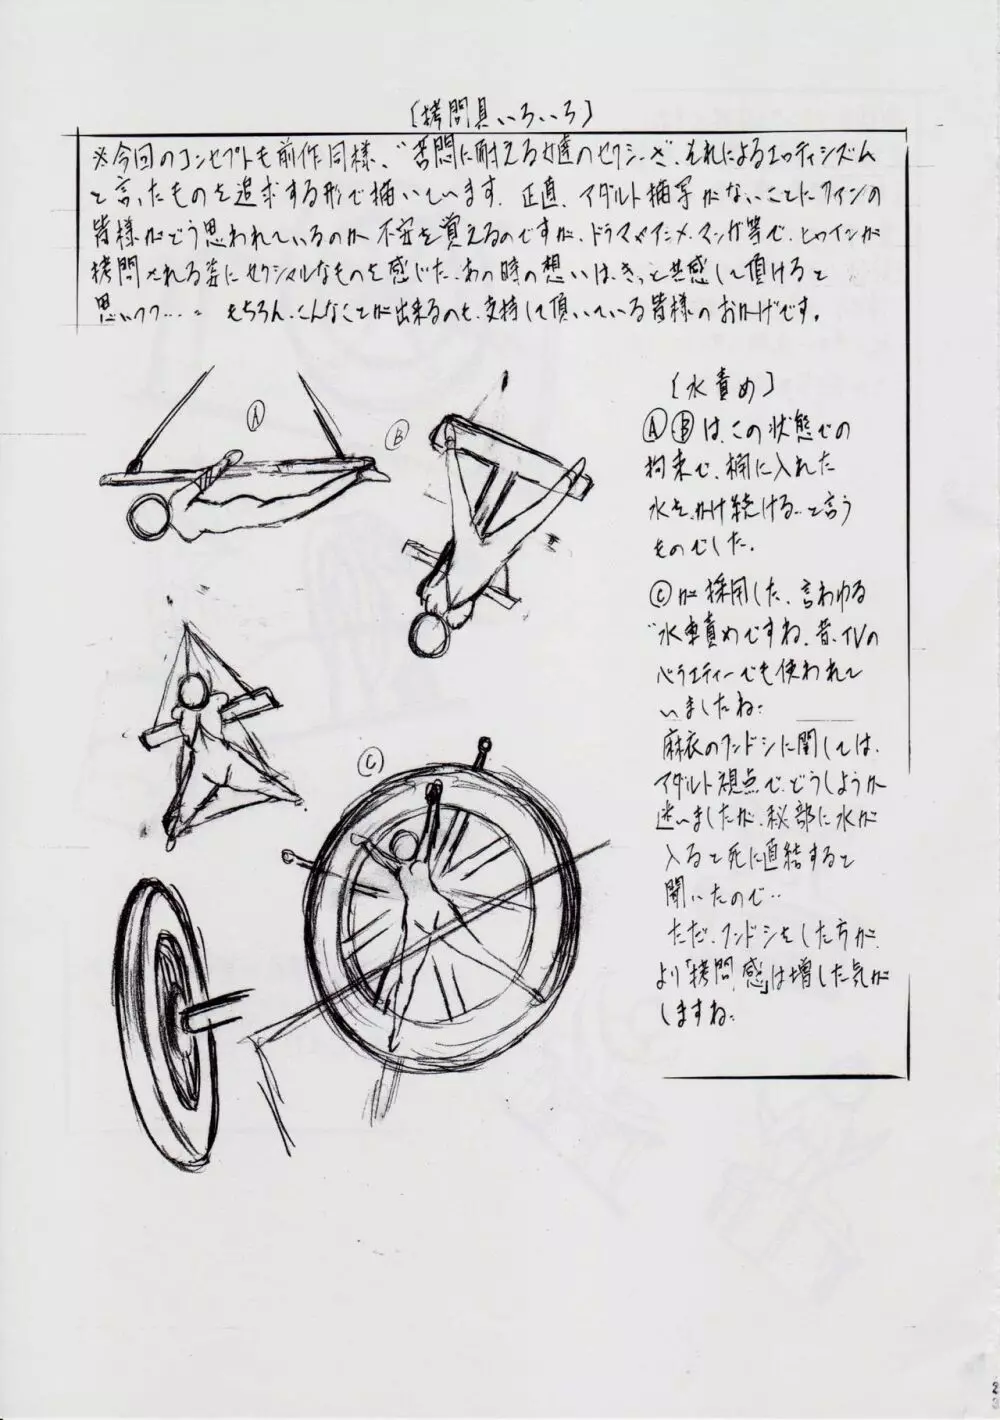 〔拷問具いろいろ〕
※今回のコンセプトも前作同様、"苦悶に耐える女達のセクシーさ、それによるエロティシズム
と言ったものを追求する形で描いています。正直、アダルト描写がないことにファンの
皆様がどう思われているのか不安を覚えるのですが、ドラマやアニメ、マンガ等で、ヒロインが
拷問される姿にセクシャルなものを感じた、あの時の想いは、きっと共感して頂けると
思いつつ…。もちろん、こんなことが出来るのも、支持して頂いている皆様のおかげです。
〔水責め〕
Ⓐ
Ⓑ
ⒶⒷは、この状態での
拘束で、桶に入れた
水を、かけ続ける…と言う
ものでした。
Ⓒが採用した、言わゆる
"水車責めですね、昔、TVの
バラエティーでも使われて
いましたね…
Ⓒ
麻衣のフンドシに関しては、
アダルト視点で、どうしようか
迷いましたが、秘部に水が
入ると死に直結すると
聞いたので…
ただ、フンドシをした方が、
より「拷問感」は増した気が
しますね…